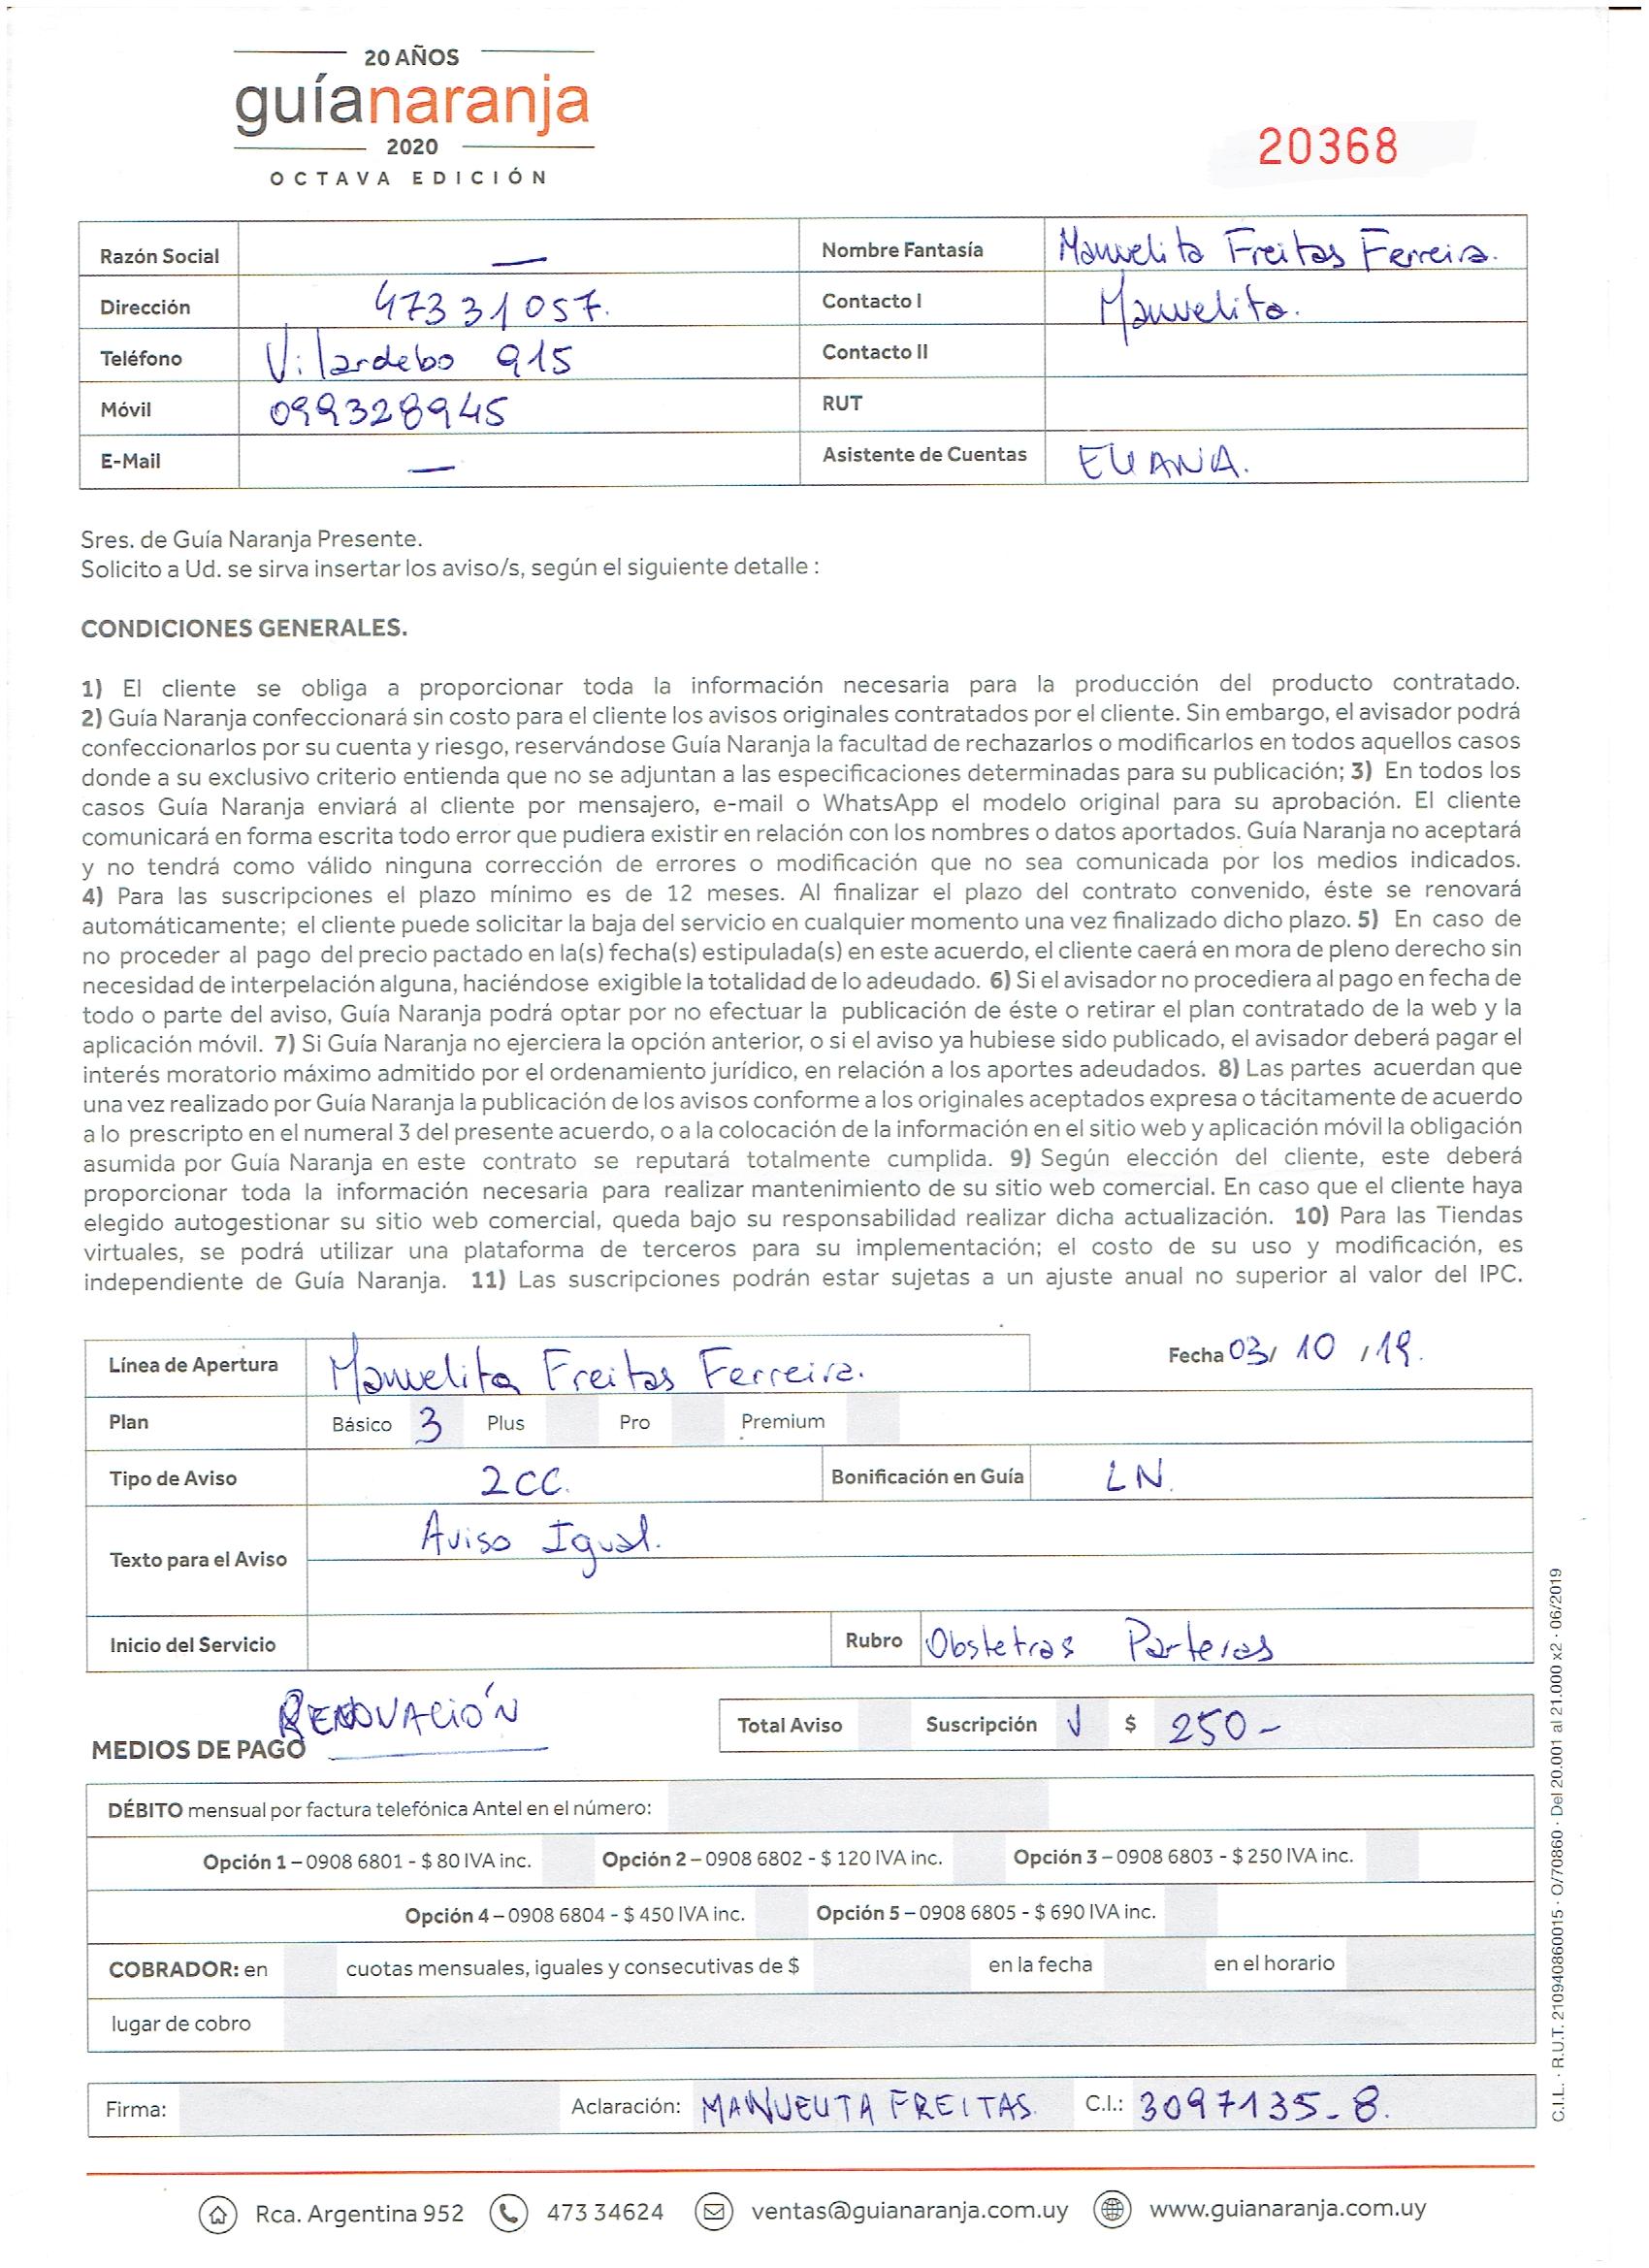 20 AÑOS
guíanaranja
2020
OCTAVA EDICIÓN
20368
Razón Social — Nombre Fantasía Manuelita Freitas Ferreira.
Dirección 473 31057. Contacto I Manuelita.
Teléfono Vilardebo 915 Contacto II
Móvil 099328945 RUT
E-Mail — Asistente de Cuentas ELIANA.
Sres. de Guía Naranja Presente.
Solicito a Ud. se sirva insertar los aviso/s, según el siguiente detalle :
CONDICIONES GENERALES.
1) El cliente se obliga a proporcionar toda la información necesaria para la producción del producto contratado.
2) Guía Naranja confeccionará sin costo para el cliente los avisos originales contratados por el cliente. Sin embargo, el avisador podrá
confeccionarlos por su cuenta y riesgo, reservándose Guía Naranja la facultad de rechazarlos o modificarlos en todos aquellos casos
donde a su exclusivo criterio entienda que no se adjuntan a las especificaciones determinadas para su publicación; 3) En todos los
casos Guía Naranja enviará al cliente por mensajero, e-mail o WhatsApp el modelo original para su aprobación. El cliente
comunicará en forma escrita todo error que pudiera existir en relación con los nombres o datos aportados. Guía Naranja no aceptará
y no tendrá como válido ninguna corrección de errores o modificación que no sea comunicada por los medios indicados.
4) Para las suscripciones el plazo mínimo es de 12 meses. Al finalizar el plazo del contrato convenido, éste se renovará
automáticamente; el cliente puede solicitar la baja del servicio en cualquier momento una vez finalizado dicho plazo. 5) En caso de
no proceder al pago del precio pactado en la(s) fecha(s) estipulada(s) en este acuerdo, el cliente caerá en mora de pleno derecho sin
necesidad de interpelación alguna, haciéndose exigible la totalidad de lo adeudado. 6) Si el avisador no procediera al pago en fecha de
todo o parte del aviso, Guía Naranja podrá optar por no efectuar la publicación de éste o retirar el plan contratado de la web y la
aplicación móvil. 7) Si Guía Naranja no ejerciera la opción anterior, o si el aviso ya hubiese sido publicado, el avisador deberá pagar el
interés moratorio máximo admitido por el ordenamiento jurídico, en relación a los aportes adeudados. 8) Las partes acuerdan que
una vez realizado por Guía Naranja la publicación de los avisos conforme a los originales aceptados expresa o tácitamente de acuerdo
a lo prescripto en el numeral 3 del presente acuerdo, o a la colocación de la información en el sitio web y aplicación móvil la obligación
asumida por Guía Naranja en este contrato se reputará totalmente cumplida. 9) Según elección del cliente, este deberá
proporcionar toda la información necesaria para realizar mantenimiento de su sitio web comercial. En caso que el cliente haya
elegido autogestionar su sitio web comercial, queda bajo su responsabilidad realizar dicha actualización. 10) Para las Tiendas
virtuales, se podrá utilizar una plataforma de terceros para su implementación; el costo de su uso y modificación, es
independiente de Guía Naranja. 11) Las suscripciones podrán estar sujetas a un ajuste anual no superior al valor del IPC.
Línea de Apertura Manuelita Freitas Ferreira. Fecha 03/ 10 /19.
Plan Básico 3 Plus Pro Premium
Tipo de Aviso 2CC. Bonificación en Guía LN.
Texto para el Aviso Aviso Igual.
Inicio del Servicio Rubro Obstetras Parteras
RENOVACIÓN
Total Aviso Suscripción √ $ 250-
MEDIOS DE PAGO
DÉBITO mensual por factura telefónica Antel en el número:
Opción 1 – 0908 6801 - $ 80 IVA inc. Opción 2 – 0908 6802 - $ 120 IVA inc. Opción 3 – 0908 6803 - $ 250 IVA inc.
Opción 4 – 0908 6804 - $ 450 IVA inc. Opción 5 – 0908 6805 - $ 690 IVA inc.
COBRADOR: en cuotas mensuales, iguales y consecutivas de $ en la fecha en el horario
lugar de cobro
Firma: Aclaración: MANUELITA FREITAS. C.I.: 3097135-8.
Rca. Argentina 952 473 34624 ventas@guianaranja.com.uy www.guianaranja.com.uy
C.I.L. · R.U.T. 210940860015 · O/70860 · Del 20.001 al 21.000 x2 · 06/2019